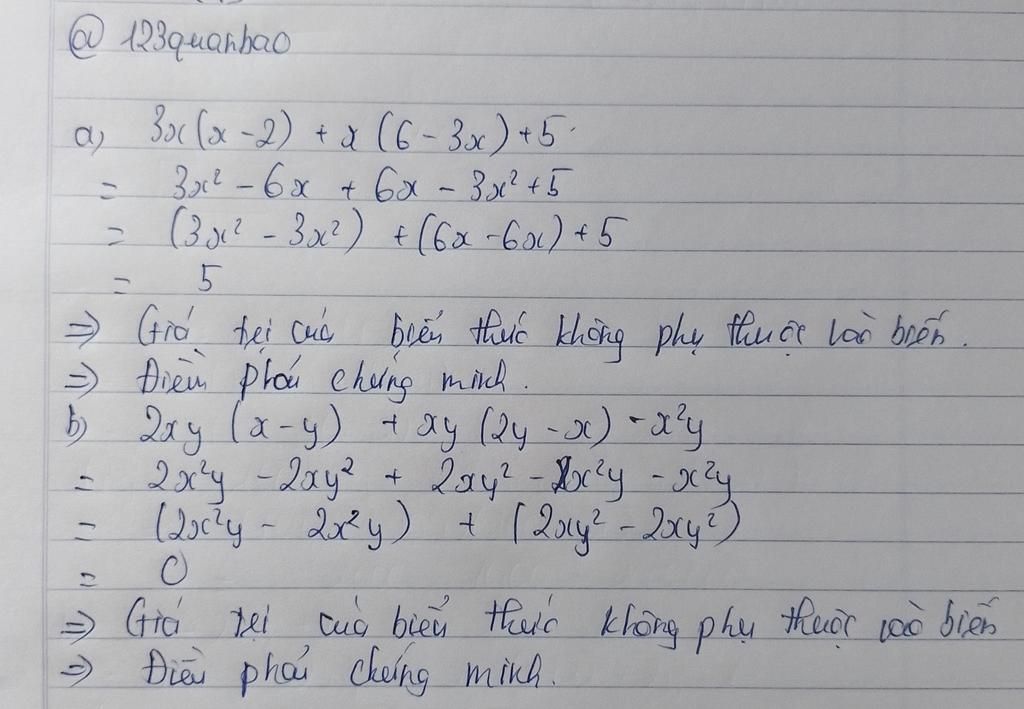 @ 123quanbao
a) 3x(x - 2) + x (6 - 3x) + 5
= 3x² - 6x + 6x - 3x² + 5
= (3x² - 3x²) + (6x - 6x) + 5
= 5
=> Giá trị của biểu thức không phụ thuộc vào biến.
=> Điều phải chứng minh.
b) 2xy (x - y) + xy (2y - x) - x²y
= 2x²y - 2xy² + 2xy² - x²y - x²y
= (2x²y - 2x²y) + (2xy² - 2xy²)
= 0
=> Giá trị của biểu thức không phụ thuộc vào biến
=> Điều phải chứng minh.